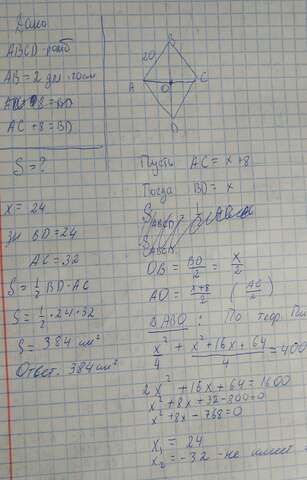 Дано
ABCD - ромб
AB = 2
AC + 8 = BD
S = ?
x = 24
BD = 24
AC = 32
S = 1/2 BD · AC
S = 1/2 · 24 · 32
S = 384 см²
Ответ. 384 см²
B
20
A
O
C
D
Пусть AC = x + 8
Тогда BD = x
OB = BD/2 = x/2
AO = (x+8)/2 (AC/2)
ΔABO : По теор. Пи
x²/4 + (x² + 16x + 64)/4 = 400
2x² + 16x + 64 = 1600
x² + 8x + 32 - 800 = 0
x² + 8x - 768 = 0
x₁ = 24
x₂ = -32 - не имеет